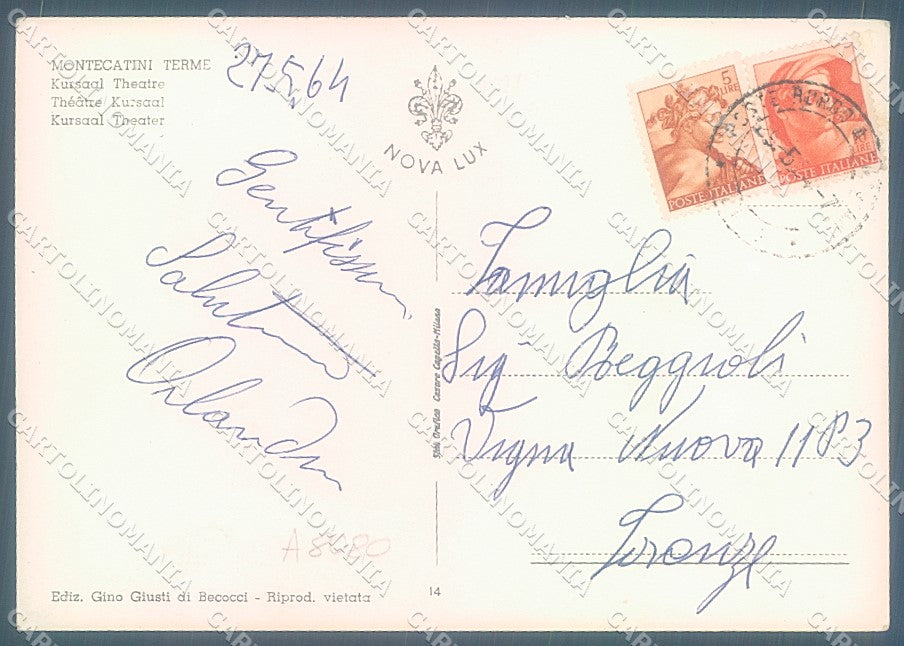 MONTECATINI TERME
Kursaal Theatre
Théâtre Kursaal
Kursaal Theater
27564
NOVA LUX
5
LIRE
POSTE ITALIANE
LIRE
POSTE ITALIANE
Gentilissimi
Saluti
Orlandi
Famiglia
Sig Beggioli
Vigna Nuova 11P3
Firenze
Stab. Grafico Cesare Capello-Milano
Ediz. Gino Giusti di Becocci - Riprod. vietata
14
CARTOLINOMANIA